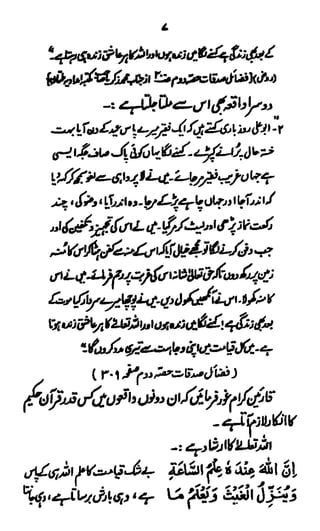 ۷
کے بعد بھی زندگی ہے کہنے لگا میں زندہ ہوں اور اللہ کا ہر عاشق زندہ ہی رہتا ہے۔"
دوسرا واقعہ بھی اس سے ملتا جلتا ہے :۔
۲۔ "ابو علی روذباری کہتے ہیں کہ ایک فقیر میرے پاس عید کے دن آیا بہت
خستہ حال پرانے کپڑے۔ کہنے لگا یہاں کوئی پاک صاف جگہ ایسی
ہے جہاں غریب فقیر مر جائے۔ میں نے لاپرواہی سے لغو سمجھ کر کہہ دیا
کہ اندر آ جا اور جہاں چاہے پڑ کے مر جا۔ وہ اندر آیا، وضو کی، چند
رکعت نماز پڑھی اور لیٹ کر مر گیا۔ میں نے اس کی تجہیز و تکفین کی اور
جب دفن کرنے لگا تو مجھے خیال آیا کہ اس کے منہ سے کفن ہٹا کر اس کا منہ
زمین پر رکھ دوں تاکہ حق تعالیٰ شانہ اس کی غربت پر رحم فرمائے۔ میں نے اس
کا منہ کھولا۔ اس نے آنکھیں کھول دیں۔ میں نے پوچھا میرے سردار کیا موت کے
بعد بھی زندگی ہے؟ کہنے لگا میں زندہ ہوں اور اللہ تعالیٰ کا ہر عاشق زندہ ہوتا
ہے۔ میں کل قیامت میں اپنی وجاہت سے تیری مدد کروں گا۔"
(فضائل صدقات حصہ دوم صفحہ ۳۰۹)
قارئین کرام غور فرمائیں کہ ان دونوں واقعوں میں کس قدر قرآن حکیم
کا انکار لازم آتا ہے۔
اللہ تعالےٰ کا ارشاد ہے :۔
اِنَّ اللّٰهَ عِنْدَهٗ عِلْمُ السَّاعَةِ بے شک قیامت کا علم اللہ ہی کے پاس
وَيُنَزِّلُ الْغَيْثَ وَيَعْلَمُ مَا ہے، وہی بارش برساتا ہے، وہی جانتا